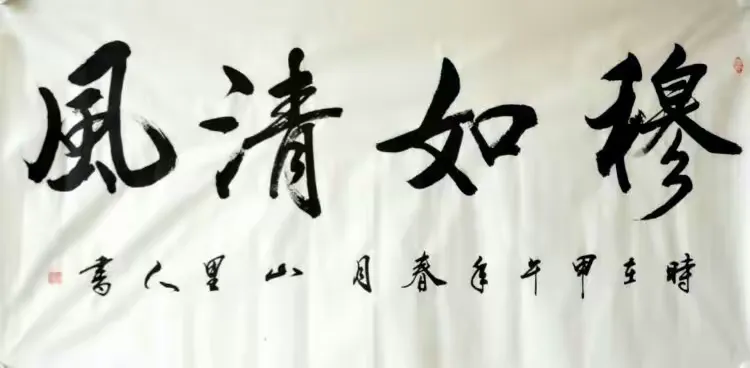 穆如清風
時在甲午年春月山里人書